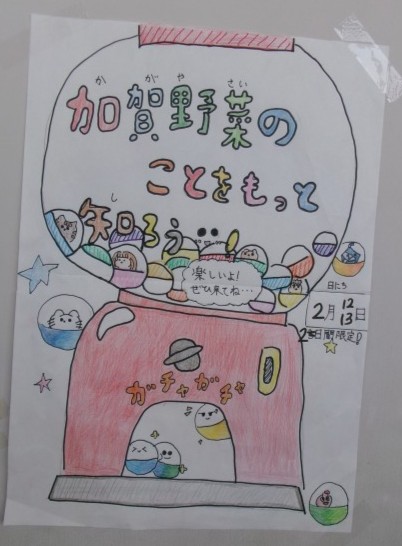 加賀野菜の
ことをもっと
知ろう
楽しいよ!
ぜひ来てね…
日にち
2月12
13日
2日間限定!
ガチャガチャ